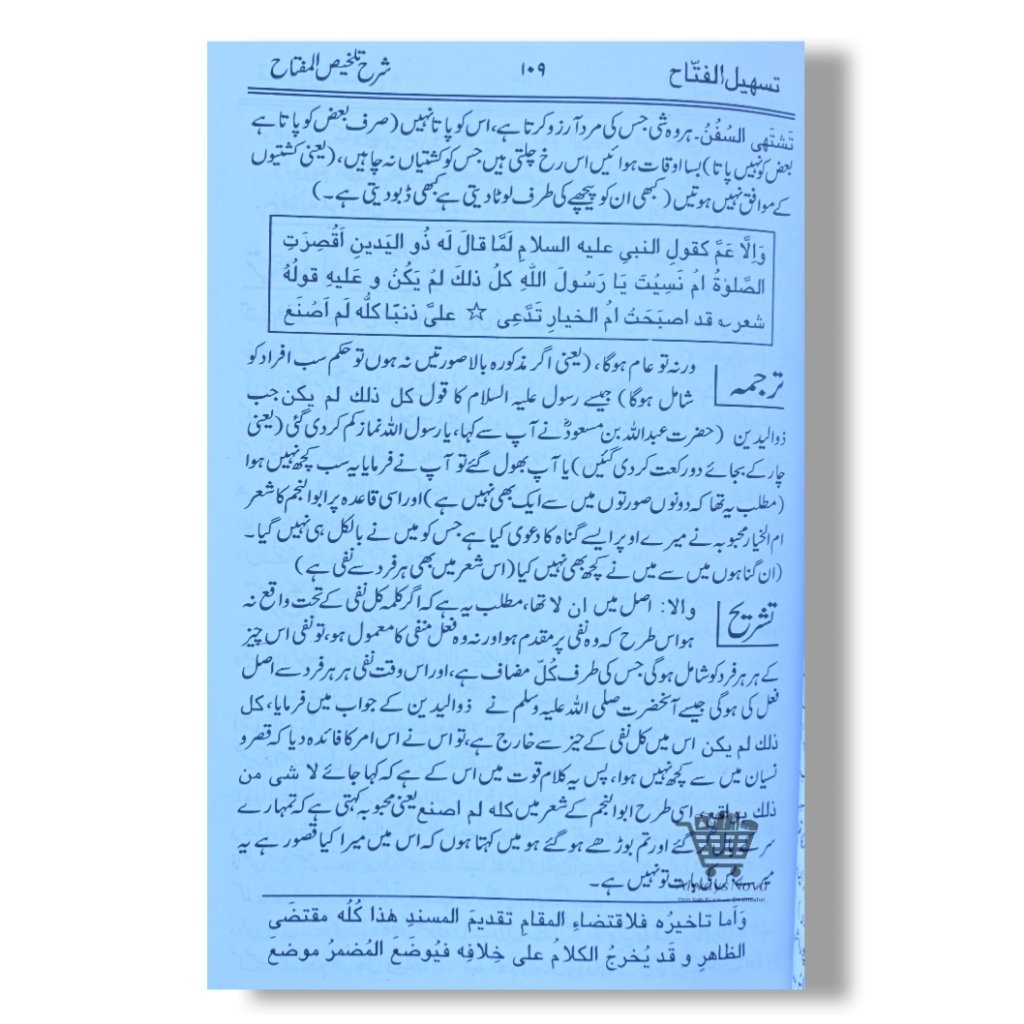 تسهیل الفتّاح ۱۰۹ شرح تلخیص المفتاح
تَشتَهِی السُفُنُ۔ ہر وہ شی جس کی مرد آرزو کرتا ہے، اس کو پاتا نہیں (صرف بعض کو پاتا ہے
بعض کو نہیں پاتا) بسا اوقات ہوائیں اس رخ چلتی ہیں جس کو کشتیاں نہ چاہیں، (یعنی کشتیوں
کے موافق نہیں ہوتیں (کبھی ان کو پیچھے کی طرف لوٹا دیتی ہے کبھی ڈبو دیتی ہے۔)
وَاِلَّا عَمَّ كقولِ النبیِ علیه السلامِ لَمَّا قالَ لَه ذُو الیَدینِ اَقُصِرَتِ
الصَّلوٰةُ امُ نَسِیْتَ یَا رَسُولَ اللهِ كلُ ذلكَ لمُ یَكُنُ و عَلیهِ قولُهُ
شعر؎ قد اصبَحَتُ امُ الخیارِ تَدَّعِی ☆ علیَّ ذنبًا كلُّه لَم اَصْنَعٖ
ترجمہ ورنہ تو عام ہوگا، (یعنی اگر مذکورہ بالا صورتیں نہ ہوں تو حکم سب افراد کو
شامل ہوگا) جیسے رسول علیہ السلام کا قول كل ذلك لم یكن جب
ذوالیدین (حضرت عبداللہ بن مسعودؓ نے آپ سے کہا، یا رسول اللہ نماز کم کر دی گئی (یعنی
چار کے بجائے دو رکعت کر دی گئیں) یا آپ بھول گئے تو آپ نے فرمایا یہ سب کچھ نہیں ہوا
(مطلب یہ تھا کہ دونوں صورتوں میں سے ایک بھی نہیں ہے) اور اسی قاعدہ پر ابوالنجم کا شعر
ام الخیار محبوبہ نے میرے اوپر ایسے گناہ کا دعوی کیا ہے جس کو میں نے بالکل ہی نہیں گیا۔
(ان گناہوں میں سے میں نے کچھ بھی نہیں کیا (اس شعر میں بھی ہر فرد سے نفی ہے)
تشریح والا: اصل میں ان لا تھا، مطلب یہ ہے کہ اگر کلمہ کل نفی کے تحت واقع نہ
ہو اس طرح کہ وہ نفی پر مقدم ہو اور نہ وہ فعل منفی کا معمول ہو، تو نفی اس چیز
کے ہر ہر فرد کو شامل ہوگی جس کی طرف كُلّ مضاف ہے، اور اس وقت نفی ہر ہر فرد سے اصل
فعل کی ہوگی جیسے آنحضرت صلی اللہ علیہ وسلم نے ذوالیدین کے جواب میں فرمایا، كل
ذلك لم یكن اس میں کل نفی کے حیز سے خارج ہے، تو اس نے اس امر کا فائدہ دیا کہ قصر و
نسیان میں سے کچھ نہیں ہوا، پس یہ کلام قوت میں اس کے ہے کہ کہا جائے لا شی من
ذلك بواقع، اسی طرح ابوالنجم کے شعر میں كله لم اصنع یعنی محبوبہ کہتی ہے کہ تمہارے
سر کے بال گئے اور تم بوڑھے ہو گئے ہو میں کہتا ہوں کہ اس میں میرا کیا قصور ہے یہ
میرے بات تو نہیں ہے۔
Always Nova
وَاَما تاخیرُه فلاقتضاءِ المقامِ تقدیمَ المسندِ هٰذا كُلُه مقتضَی
الظاهرِ و قَد یُخرجُ الكلامُ علی خِلافِه فیُوضَعَ المُضمرُ موضعَ